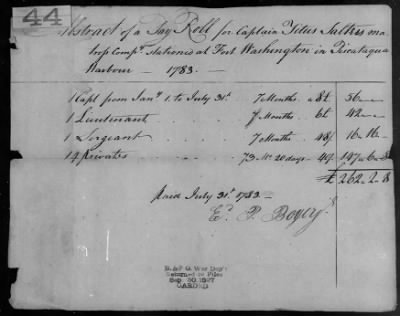 44
Abstract of a Pay Roll for Captain Titus Salters ma
tross Compy. stationed at Fort Washington in Piscataqua
Harbour — 1783. —
1 Capt from Jany 1. to July 31st 7 Months a 8£ 56 —
1 Lieutenant 7 Months. 6£ 42 —
1 Sergeant 7 Months 48/ 16-16-
14 privates 73 Mo 20 days - 40/ 147-6-8
£ 262-2-8
Paid July 31st 1783. —
Ed. P.
R.&P O. War Dep't
Returned to Files
Sep. 30, 1887
CARDED